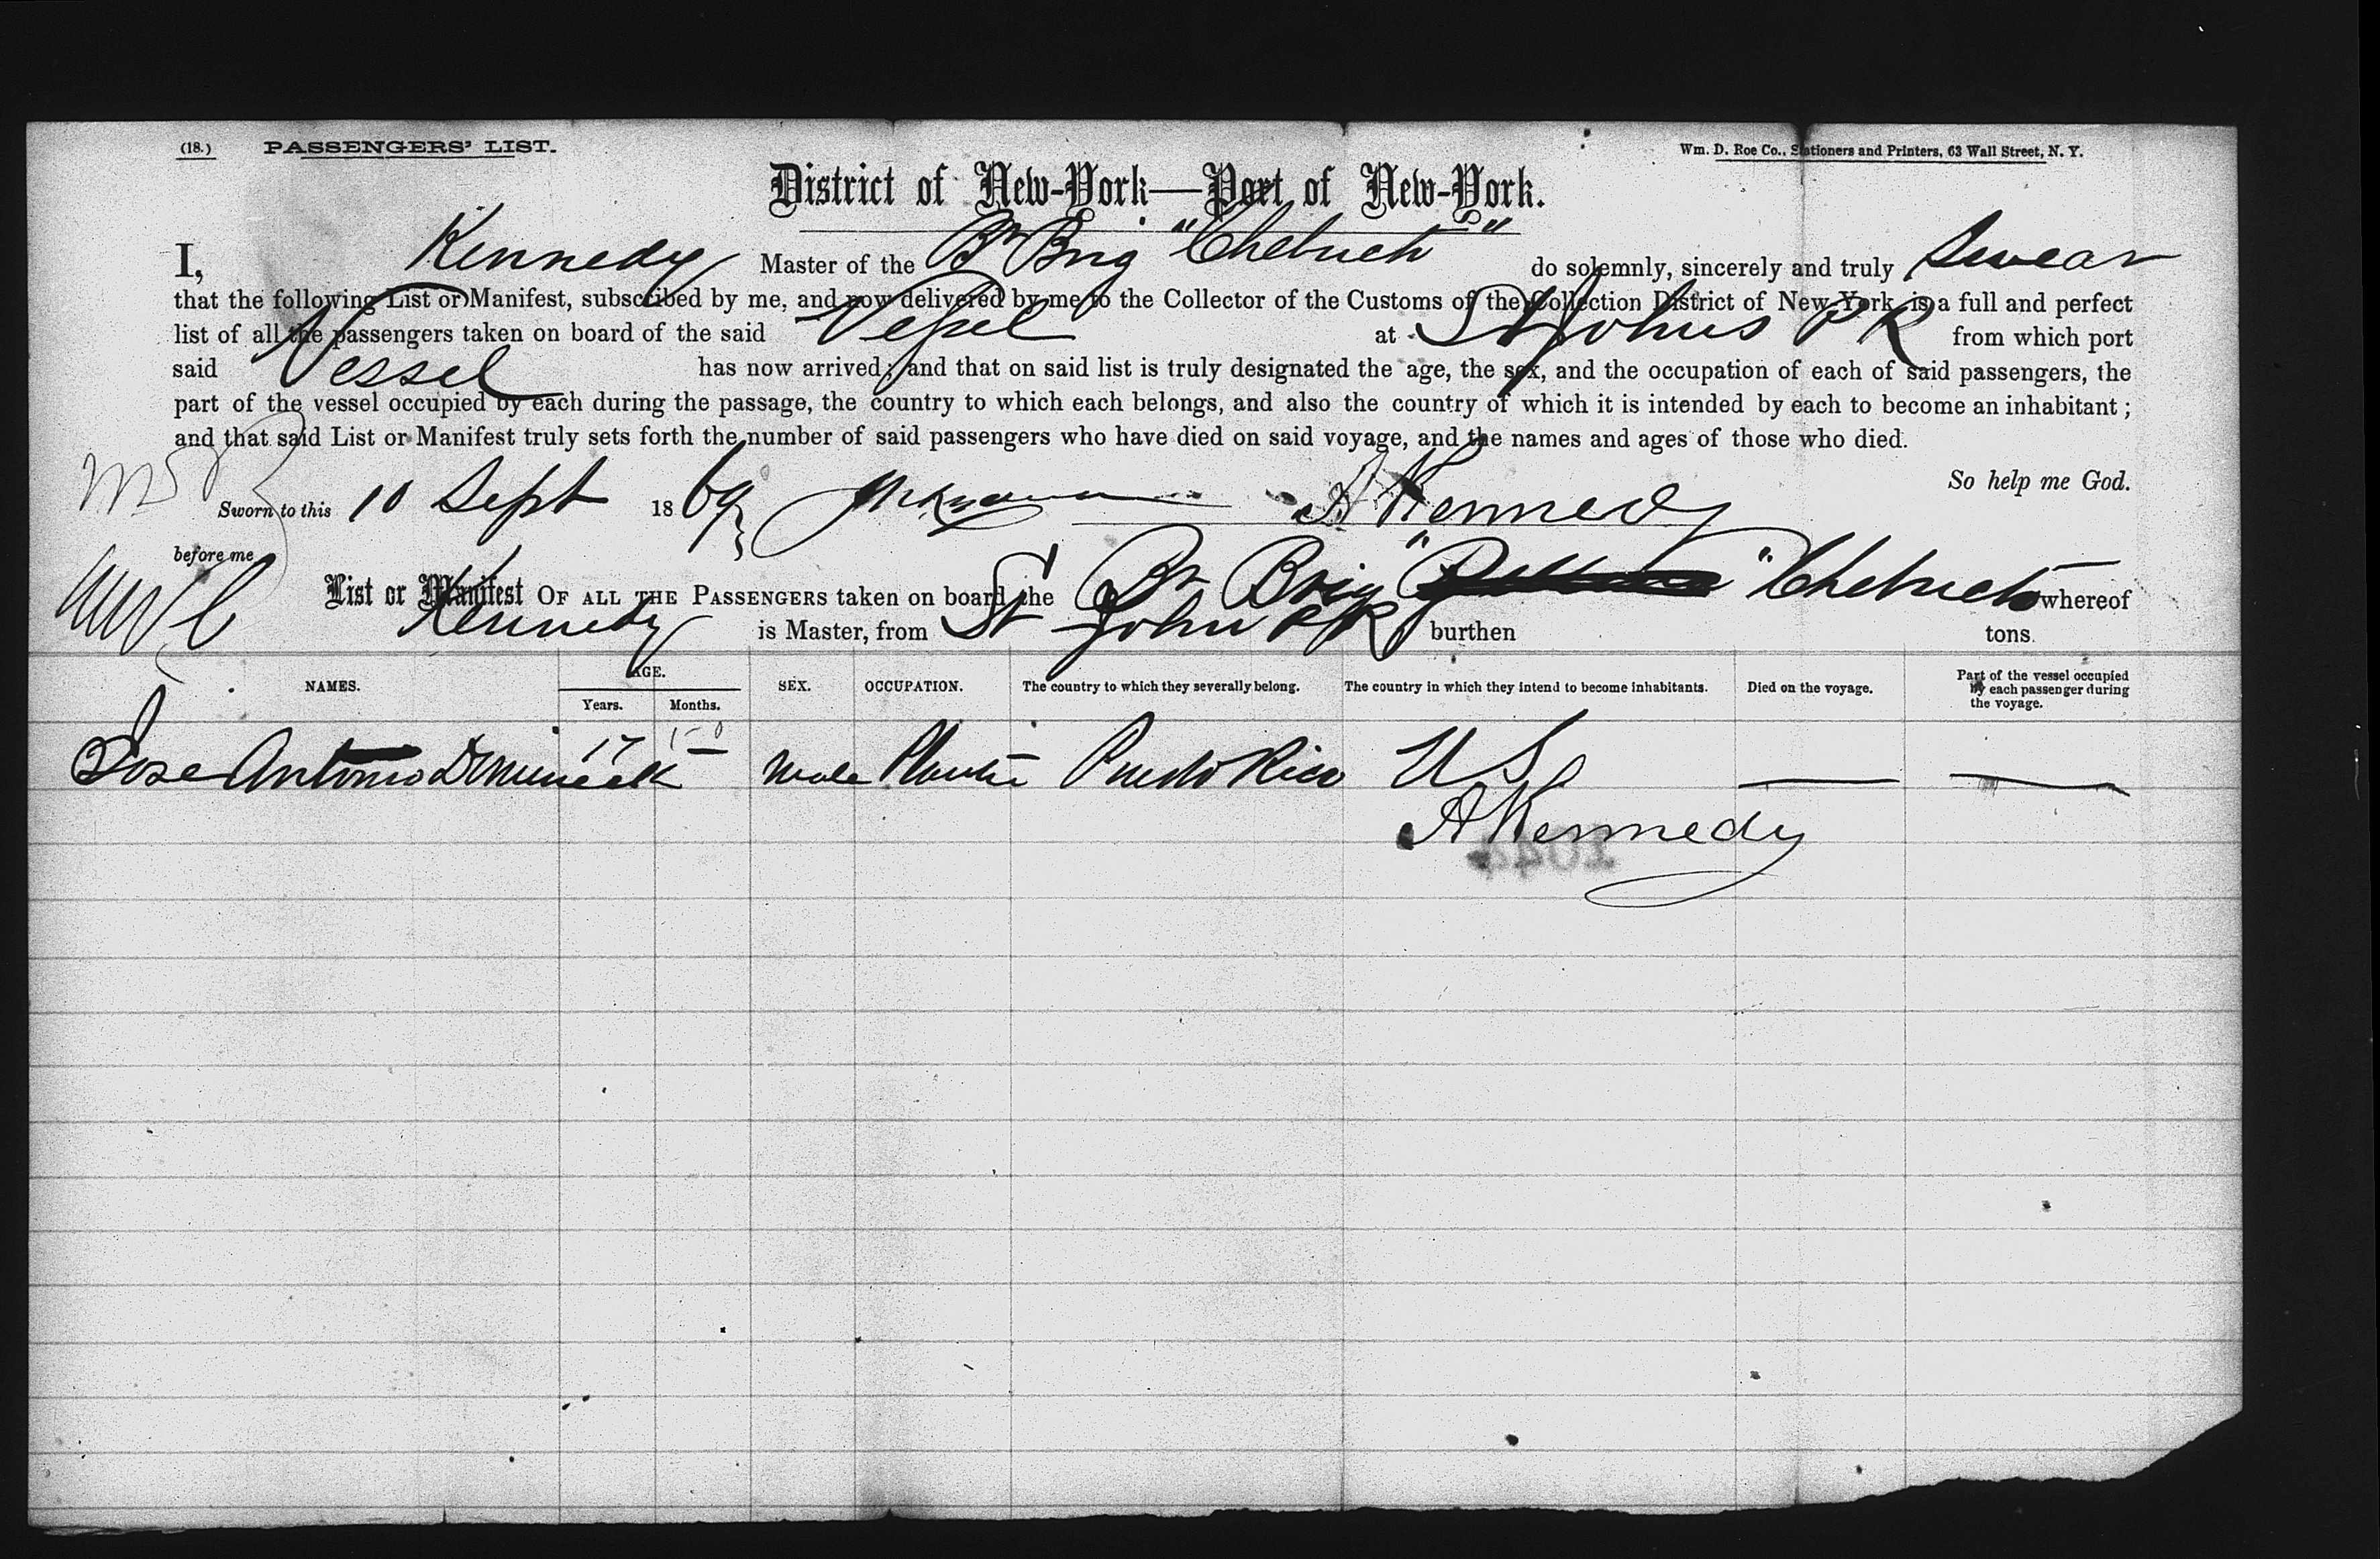 (18.) PASSENGERS' LIST.
Wm. D. Roe Co., Stationers and Printers, 63 Wall Street, N. Y.
District of New-York—Port of New-York.
I, Kennedy Master of the Br Brig "Chebucto" do solemnly, sincerely and truly swear
that the following List or Manifest, subscribed by me, and now delivered by me to the Collector of the Customs of the Collection District of New York, is a full and perfect
list of all the passengers taken on board of the said Vessel at St Johns P R from which port
said Vessel has now arrived; and that on said list is truly designated the age, the sex, and the occupation of each of said passengers, the
part of the vessel occupied by each during the passage, the country to which each belongs, and also the country of which it is intended by each to become an inhabitant;
and that said List or Manifest truly sets forth the number of said passengers who have died on said voyage, and the names and ages of those who died.
So help me God.
Sworn to this 10 Sept 1869 A Kennedy
before me
List or Manifest OF ALL THE PASSENGERS taken on board the Br Brig "Chebucto" whereof
Kennedy is Master, from St John P R burthen tons.
NAMES. AGE. SEX. OCCUPATION. The country to which they severally belong. The country in which they intend to become inhabitants. Died on the voyage. Part of the vessel occupied by each passenger during the voyage.
Years. Months.
Jose Antonio 17 — male Puerto Rico U S — —
A Kennedy